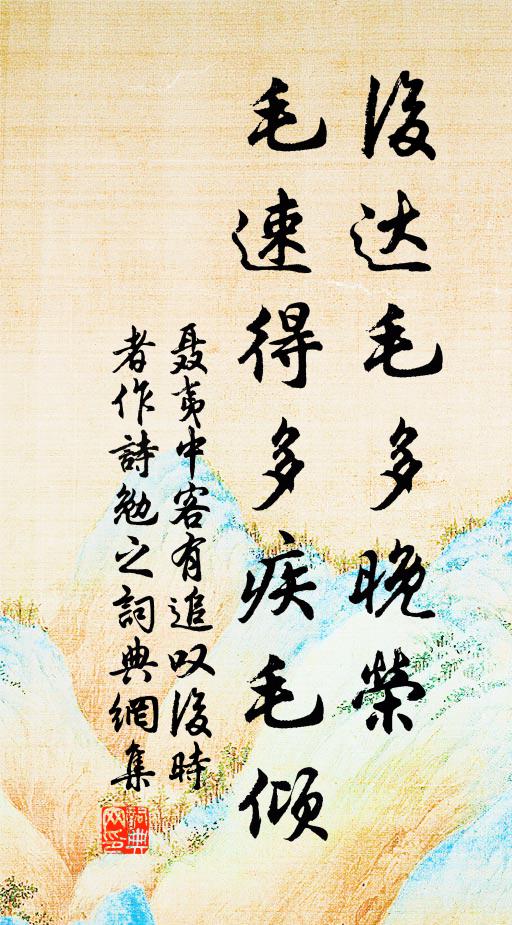 後达毛多晚榮
毛速得多疾毛倾
聂夷中客有追叹後時
者作詩勉之詞典網集
詞典
网印